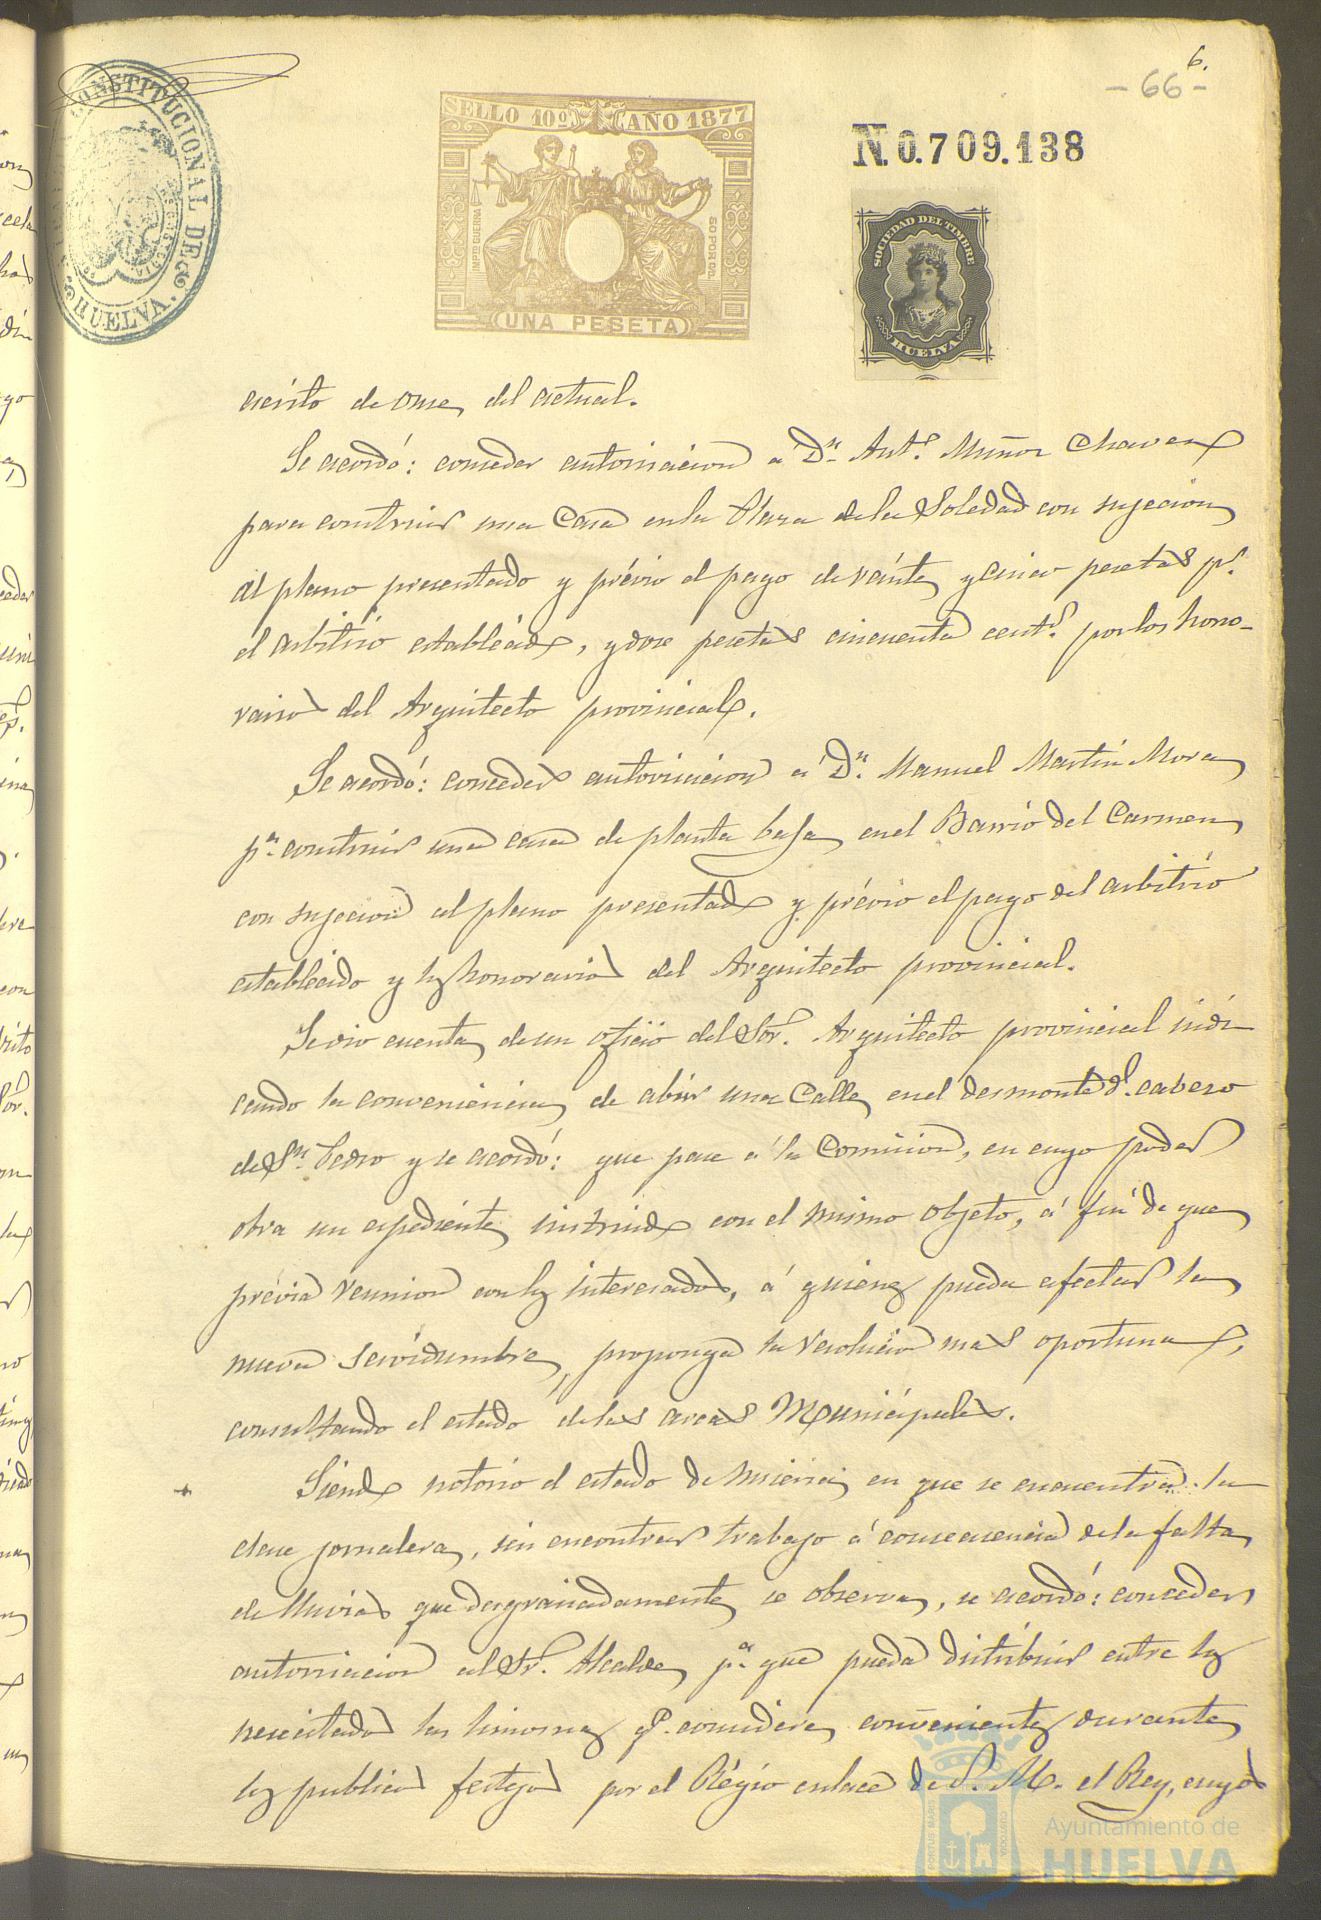 6.
- 66 -
CONSTITUCIONAL DE
HUELVA
SELLO 10º AÑO 1877
IMPTO GUERRA
50 POR 100
UNA PESETA
N. 0.709.138
SOCIEDAD DEL TIMBRE
HUELVA
escrito de once del actual.
Se acordó: conceder autorizacion a Dn. Antº. Muñoz Chaves
para construir una Casa en la Plaza de la Soledad con sujecion
al plano presentado y prévio el pago de veinte y cinco pesetas pr.
el arbitrio establecido, y doce pesetas cincuenta cents. por los hono-
rarios del Arquitecto provincial.
Se acordó: conceder autorizacion a Dn. Manuel Martin Mora
pa. construir una casa de planta baja en el Barrio del Carmen
con sujecion al plano presentado y prévio el pago del arbitrio
establecido y los honorarios del Arquitecto provincial.
Se dio cuenta de un oficio del Sor. Arquitecto provincial indi
cando la conveniencia de abrir una Calle en el desmonte dl. cabezo
de Sn. Pedro y se acordó: que pase á la Comision, en cuyo poder
obra un espediente instruido con el mismo objeto, á fin de que
prévia reunion con los interesados, á quienes pueda afectar la
nueva servidumbre, proponga la resolucion mas oportuna,
consultando el estado de las arcas Municipales.
Siendo notorio el estado de miseria en que se encuentra la
clase jornalera, sin encontrar trabajo á consecuencia de la falta
de lluvias que desgraciadamente se observa, se acordó: conceder
autorizacion al Sr. Alcalde pa. que pueda distribuir entre los
necesitados las limosnas q. considere convenientes durante
los publicos festejos por el Régio enlace de S. M. el Rey, cuyos
PORTUS MARIS
CUSTODIA
Ayuntamiento de
HUELVA